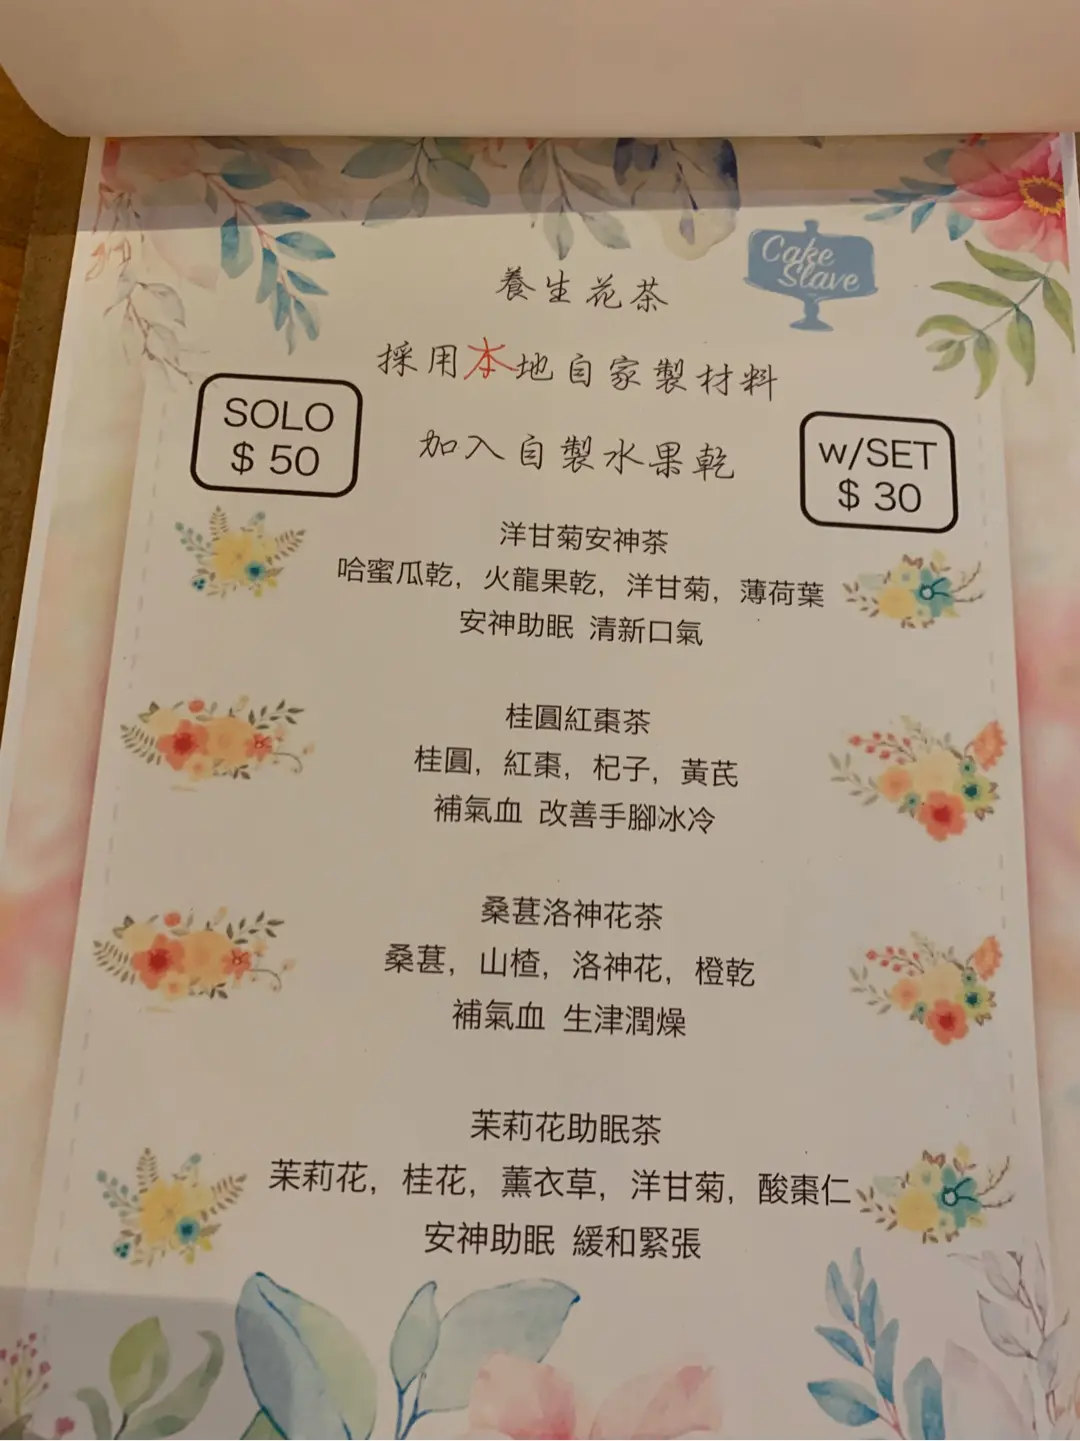 Cake
Slave
養生花茶
採用本地自家製材料
SOLO
$ 50
加入自製水果乾
w/SET
$ 30
洋甘菊安神茶
哈蜜瓜乾, 火龍果乾, 洋甘菊, 薄荷葉
安神助眠 清新口氣
桂圓紅棗茶
桂圓, 紅棗, 杞子, 黃芪
補氣血 改善手腳冰冷
桑葚洛神花茶
桑葚, 山楂, 洛神花, 橙乾
補氣血 生津潤燥
茉莉花助眠茶
茉莉花, 桂花, 薰衣草, 洋甘菊, 酸棗仁
安神助眠 緩和緊張